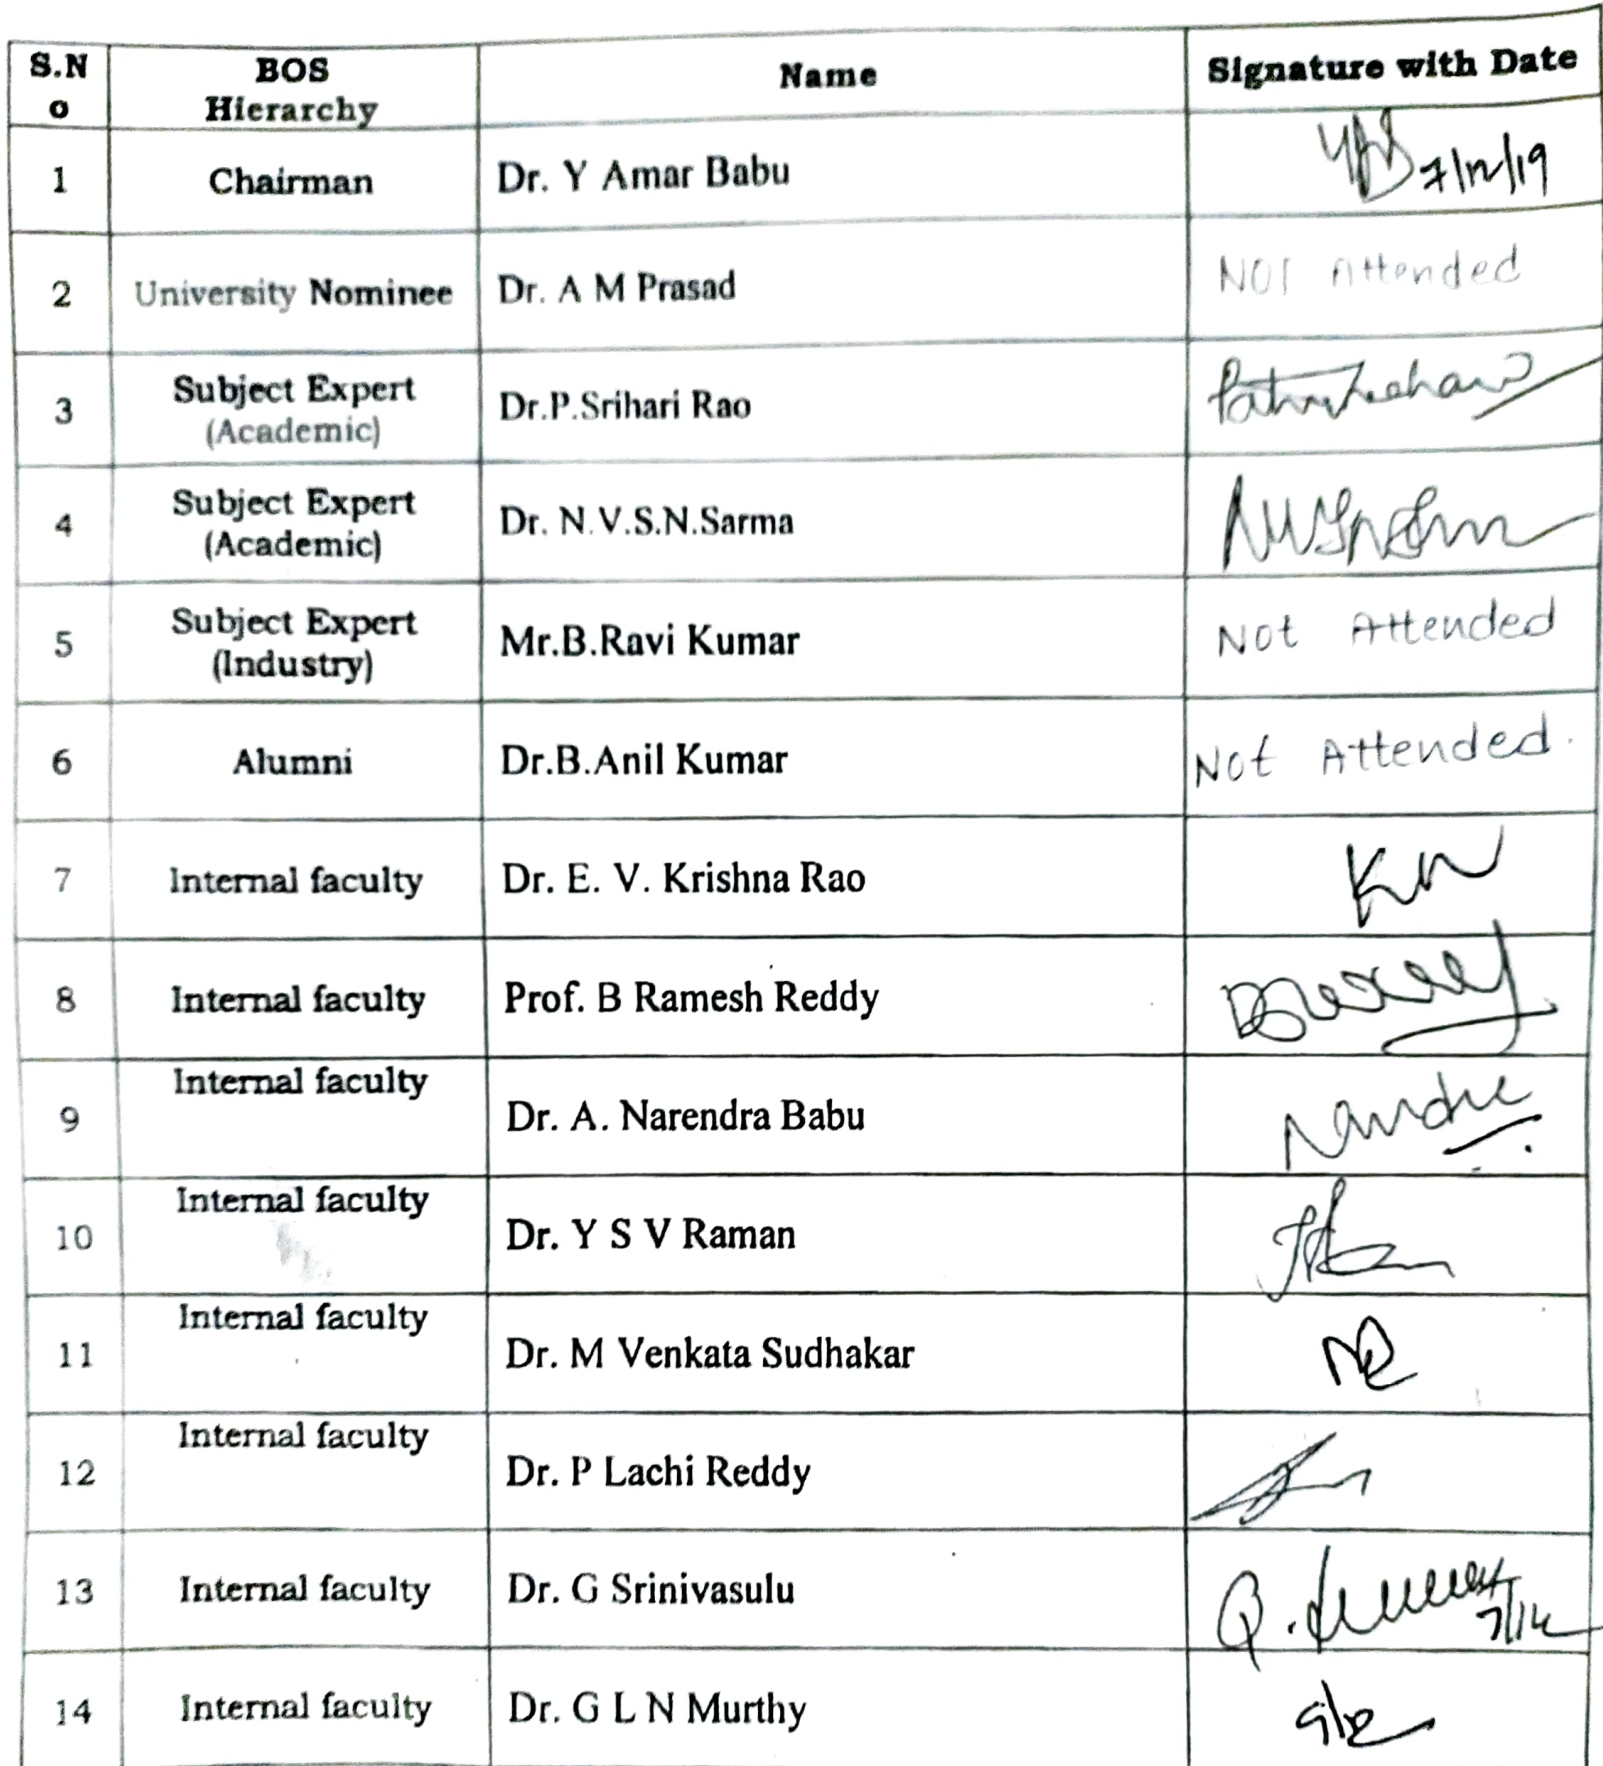 S.N
o
BOS
Hierarchy
Name
Signature with Date
1
Chairman
Dr. Y Amar Babu
7/12/19
2
University Nominee
Dr. A M Prasad
Not Attended
3
Subject Expert
(Academic)
Dr.P.Srihari Rao
4
Subject Expert
(Academic)
Dr. N.V.S.N.Sarma
5
Subject Expert
(Industry)
Mr.B.Ravi Kumar
Not Attended
6
Alumni
Dr.B.Anil Kumar
Not Attended.
7
Internal faculty
Dr. E. V. Krishna Rao
8
Internal faculty
Prof. B Ramesh Reddy
9
Internal faculty
Dr. A. Narendra Babu
10
Internal faculty
Dr. Y S V Raman
11
Internal faculty
Dr. M Venkata Sudhakar
12
Internal faculty
Dr. P Lachi Reddy
13
Internal faculty
Dr. G Srinivasulu
7/12
14
Internal faculty
Dr. G L N Murthy